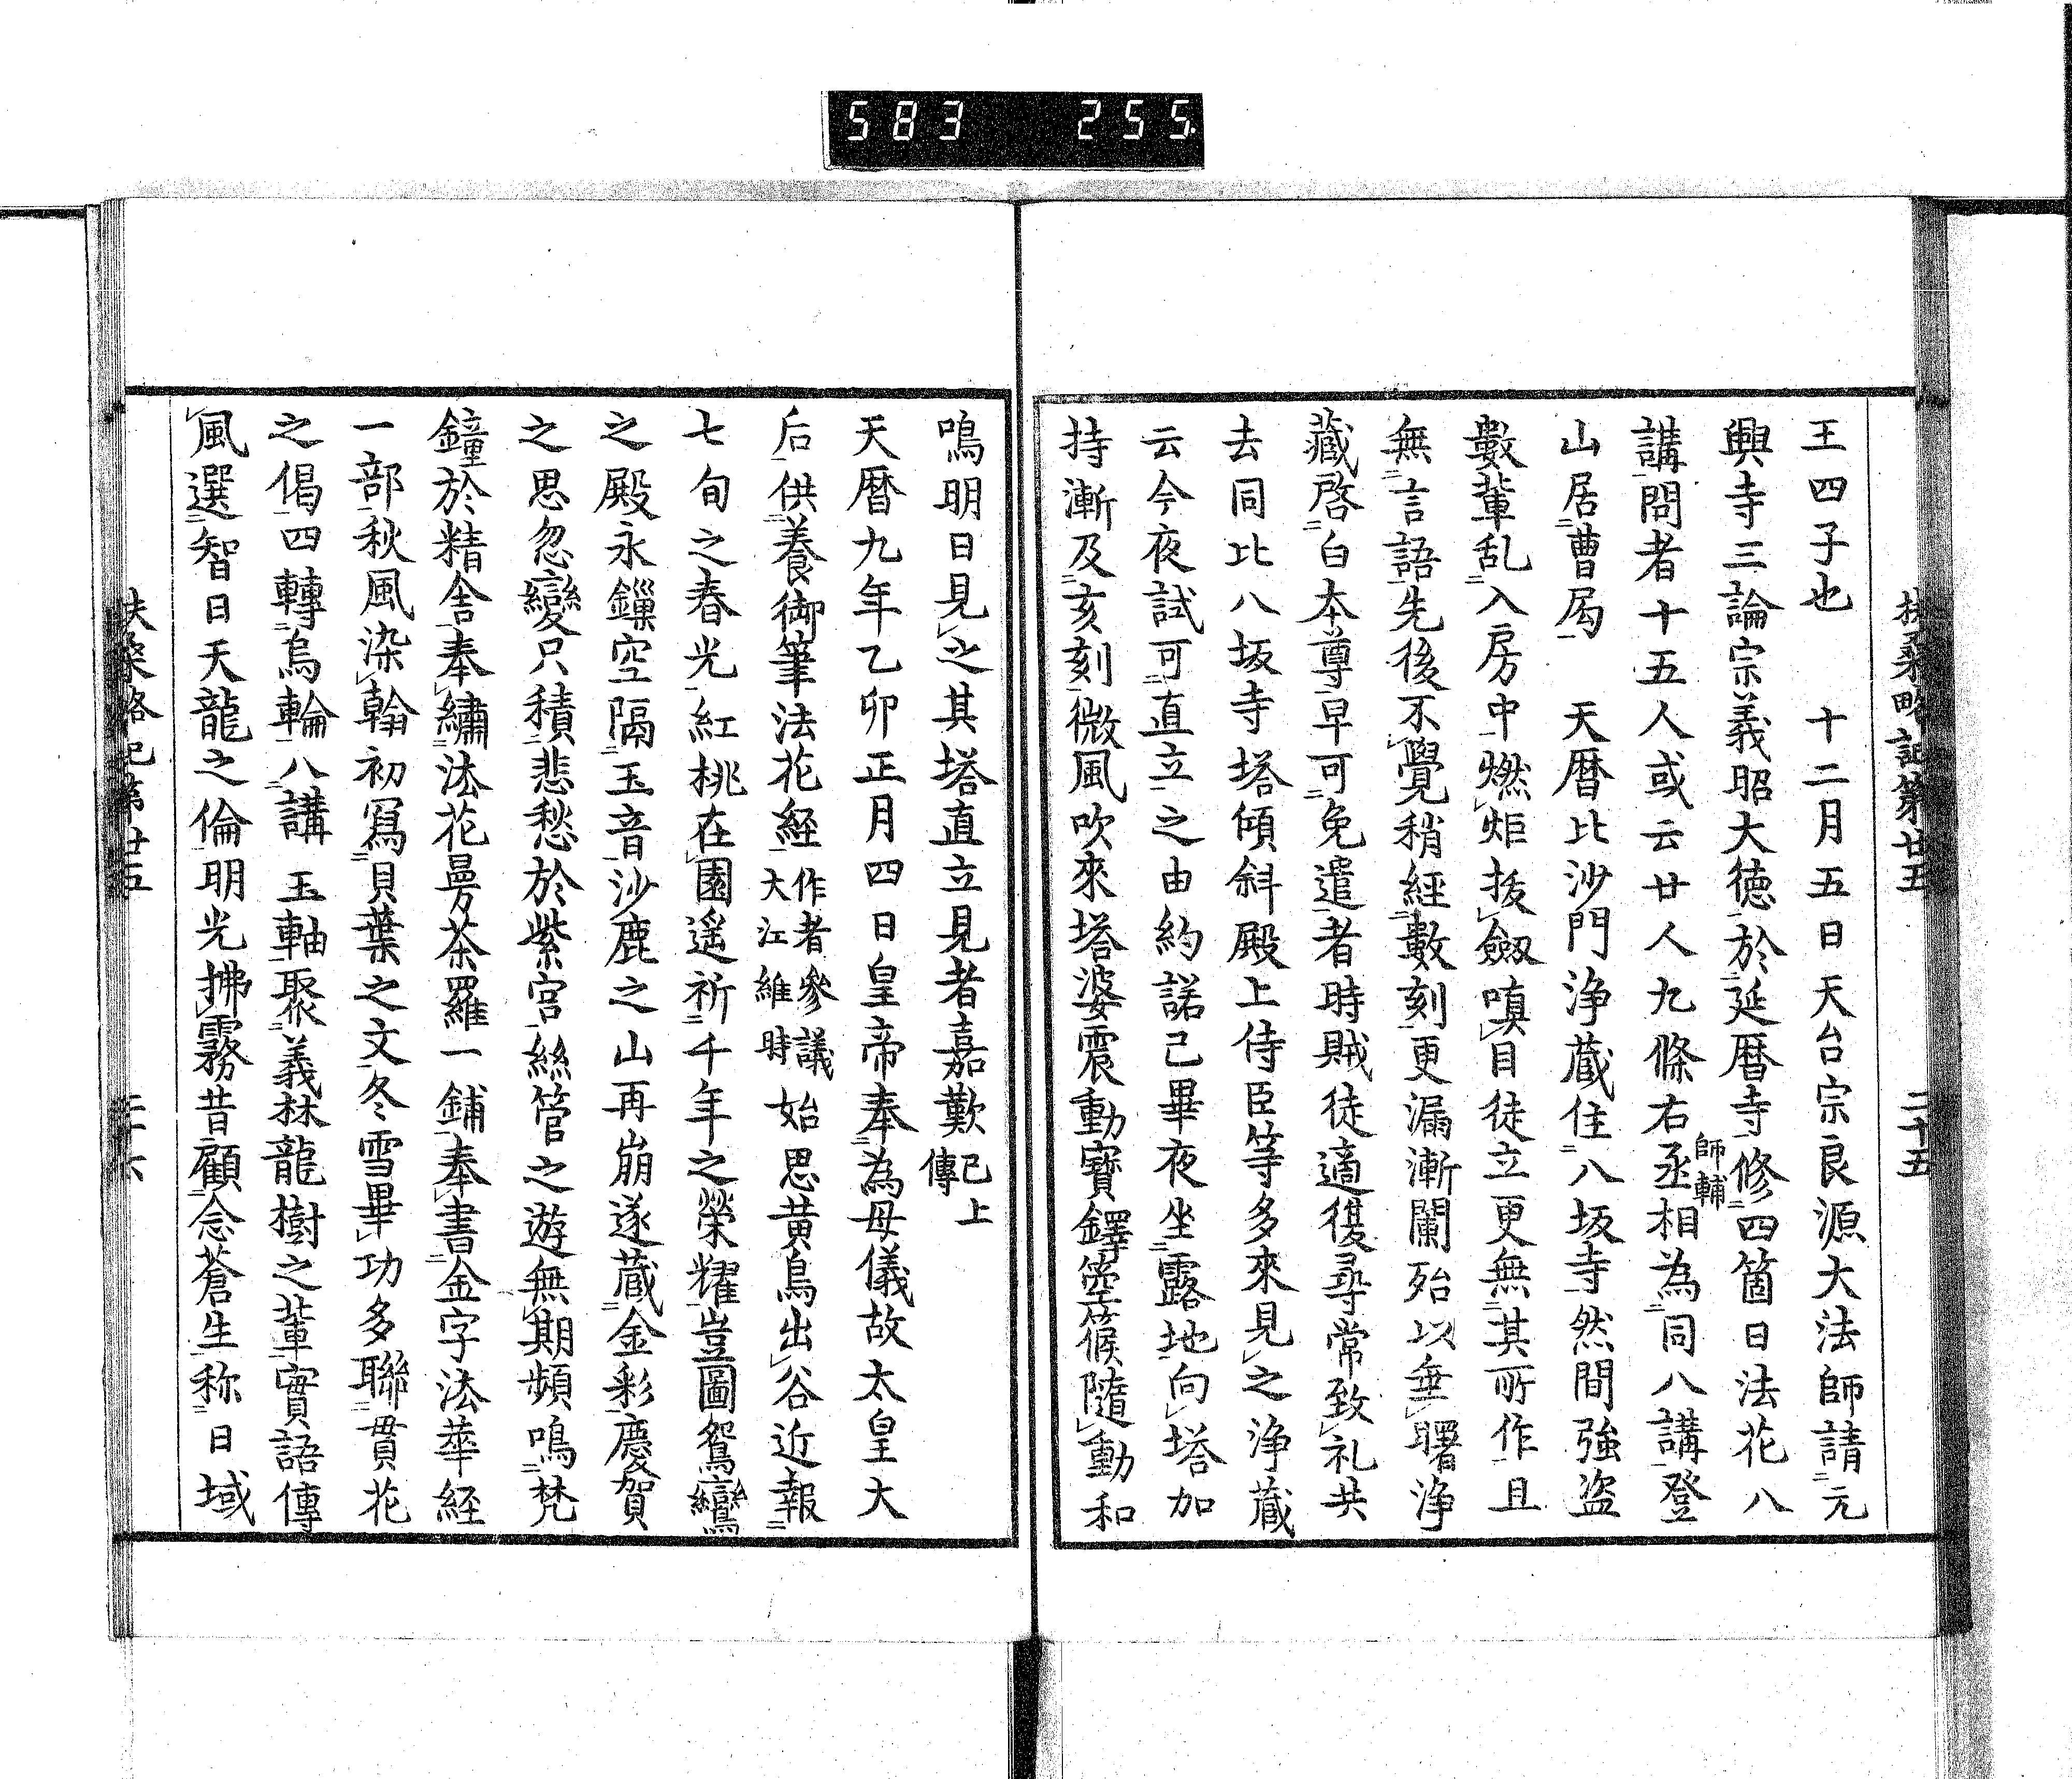 583 255
扶桑略記第廿五 二十五
王四子也 十二月五日天台宗良源大法師請元
興寺三論宗義昭大徳於延暦寺修四箇日法花八
講問者十五人或云廿人九條右丞相師輔為同八講登
山居曹局 天暦比沙門浄蔵住八坂寺然間強盗
數輩乱入房中燃炬抜劔嗔目徒立更無其所作且
無言語先後不覺稍經數刻更漏漸闌殆以垂曙浄
藏啓白本尊早可免遣者時賊徒適復尋常致礼共
去同比八坂寺塔傾斜殿上侍臣等多來見之浄蔵
云今夜試可直立之由約諾已畢夜坐露地向塔加
持漸及亥刻微風吹來塔婆震動寳鐸箜篌隨動和
鳴明日見之其塔直立見者嘉歎已上傳
天暦九年乙卯正月四日皇帝奉為母儀故太皇大
后供養御筆法花經作者參議大江維時始思黄鳥出谷近報
七旬之春光紅桃在園遥祈千年之榮耀豈圖鴛鸞
之殿永鏁空隔玉音沙鹿之山再崩遂蔵金彩慶賀
之思忽變只積悲愁於紫宮絲管之遊無期頻鳴梵
鐘於精舎奉繡法花曼荼羅一鋪奉書金字法華経
一部秋風染翰初寫貝葉之文冬雪畢功多聯貫花
之偈四轉烏輪八講玉軸聚義林龍樹之輩實語傳
風選智日天龍之倫明光拂霧昔顧念蒼生称日域
扶桑略記第廿五 二十六